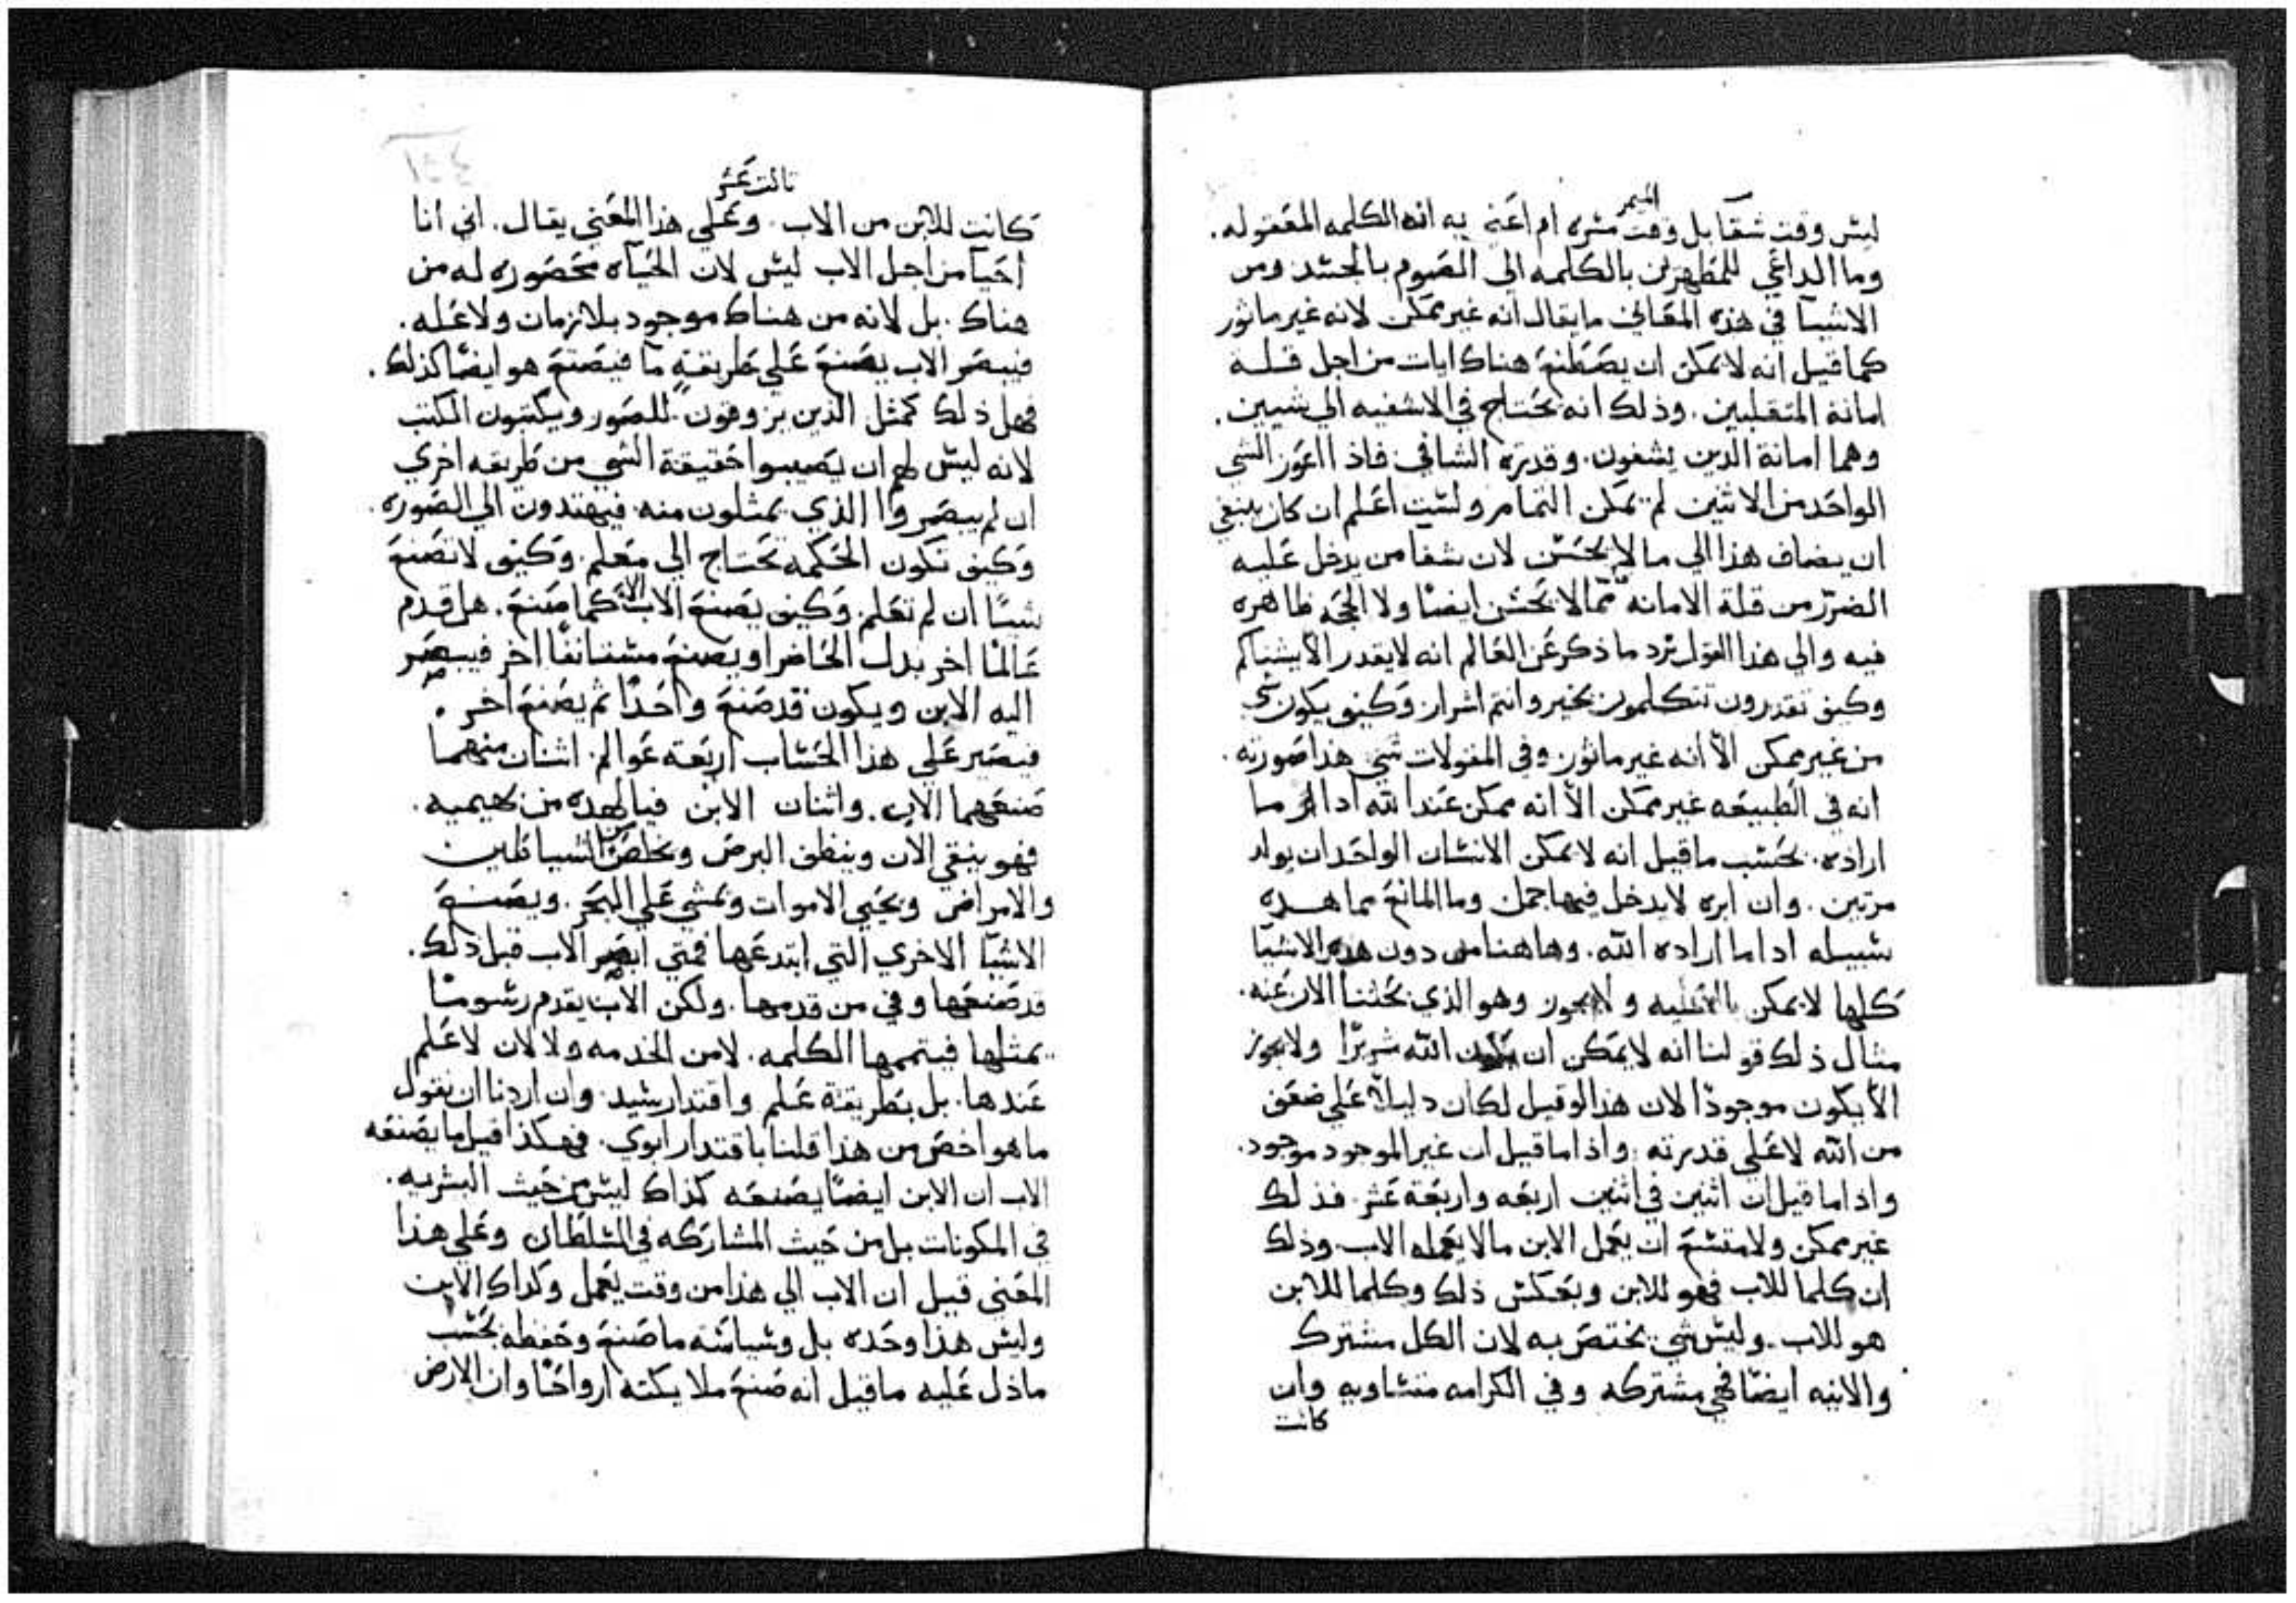 الميمر
ليس وقت شقا بل وقت مسره ام اعني به انه الكلمه المعقوله.
وما الداعي للمطهرين بالكلمه الى الصوم بالجسد ومن
الاشيا في هذه المعاني ما يقال انه غير ممكن لانه غير ماثور
كما قيل انه لا يمكن ان يصطنع هناك ايات من اجل قلة
امانة المتقلبين. وذلك انه يحتاج في الاشفيه الي شيين.
وهما امانة الدين يشفون. وقدرة الشافي فاذا اعوز الشي
الواحد من الاثنين لم يمكن التمام ولست اعلم ان كان ينبغي
ان يضاف هذا الي ما لا يحسن لان شفا من يدخل عليه
الضرر من قلة الامانه مما لا يحسن ايضا ولا الحجه ظاهره
فيه والي هذا القول يرد ما ذكر عن العالم انه لا يقدر الا يشناكم
وكيف تقدرون تتكلمون بخير وانتم اشرار وكيف يكون شي
من غير ممكن الا انه غير ماثور وفي المقولات شي هدا صورته.
انه في الطبيعه غير ممكن الا انه ممكن عند الله ادا ما
اراده. بحسب ما قيل انه لا يمكن الانسان الواحد ان يولد
مرتين. وان ابره لا يدخل فيها جمل وما المانع مما هده
سبيله ادا ما اراده الله. وهاهنا من دون هده الاشيا
كلها لا يمكن ولا يجوز وهو الذي بحثنا الان عنه.
مثال ذلك قولنا انه لا يمكن ان يكون الله شريرا ولا يجوز
الا يكون موجودا لان هذا لو قيل لكان دليلا علي ضعف
من الله لا علي قدرته. واذا ما قيل ان غير الموجود موجود.
واذا ما قيل ان اثنين في اثنين اربعه واربعة عشر. فذلك
غير ممكن ولا متسع ان يعمل الابن ما لا يعمله الاب. وذلك
ان كلما للاب فهو للابن وبعكس ذلك وكلما للابن
هو للاب. وليس شي يختص به لان الكل مشترك
والانيه ايضا فهي مشتركه وفي الكرامه متساويه وان
كانت
ثالث عشر
كانت للابن من الاب. وعلي هذا المعني يقال. اني انا
احيا من اجل الاب ليس لان الحياه محصوره له من
هناك. بل لانه من هناك موجود بلا زمان ولا عله.
فيبصر الاب يصنع علي طريقةٍ ما فيصنع هو ايضا كذلك.
فهل ذلك كمثل الذين يزوقون للصور ويكتبون الكتب
لانه ليس لهم ان يصيبوا حقيقة الشي من طريقه اخري
ان لم يبصروا الذي يمثلون منه. فيهتدون الي الصوره.
وكيف تكون الحكمه تحتاج الي معلم. وكيف لا تصنع
شيئا ان لم تعلم. وكيف يصنع الاب الان كما صنع. هل قدم
عالما اخر بدل الحاضر او يصنع مستانفا اخر فيبصر
اليه الابن ويكون قد صنع واحدا ثم يصنع اخر.
فيصير علي هذا الحساب اربعة عوالم. اثنان منهما
صنعهما الاب. واثنان الابن فيا لهذه من بهيميه.
فهو ينقي الان وينظف البرص ويخلص من الشياطين
والامراض ويحيي الاموات ويمشي علي البحر. ويصنع
الاشيا الاخري التي ابتدعها فمتي ابصر الاب قبل ذلك.
قد صنعها وفي من قدمها. ولكن الاب يقدم رسوما
يمثلها فيتممها الكلمه. لا من الخدمه ولا لان لا علم
عندها. بل بطريقة علم واقتدار سيد. وان اردنا ان نقول
ما هو اخص من هذا قلنا باقتدار ابوي. فهكذا قيل ما يصنعه
الاب ان الابن ايضا يصنعه كذاك ليس من حيث البشريه.
في المكونات بل من حيث المشاركه في السلطان وعلي هذا
المعني قيل ان الاب الي هذا من وقت يعمل وكداك الابن
وليس هذا وحده بل وسياسة ما صنع وحفظه بحسب
ما ذل عليه ما قيل انه صنع ملايكته ارواحا وان الارض